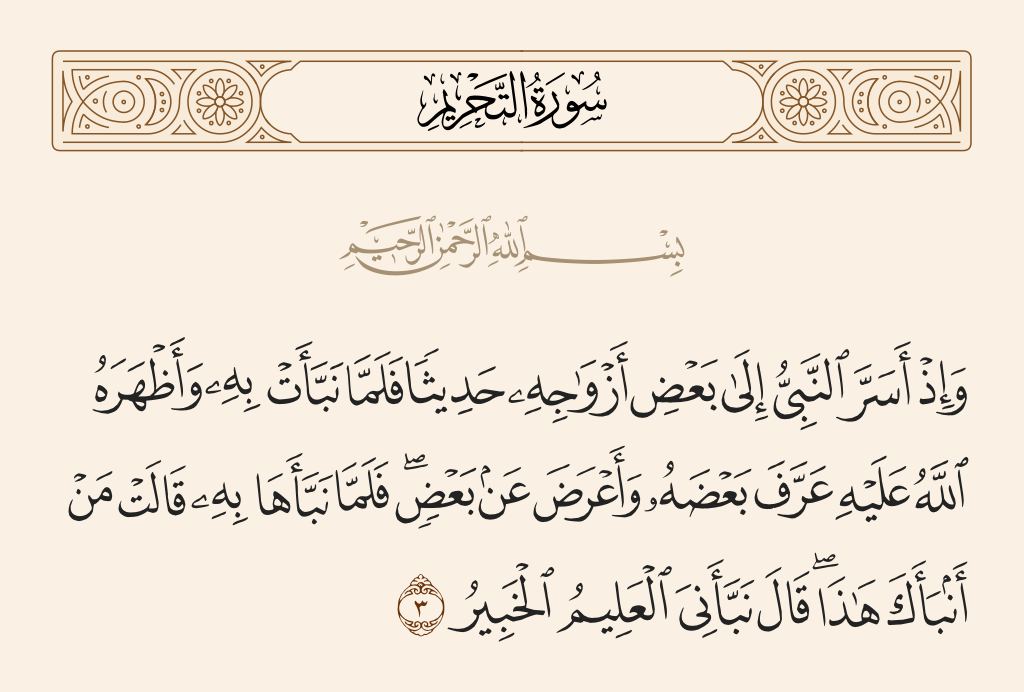 سُورَةُ التَّحْرِيمِ
بِسْمِ ٱللَّهِ ٱلرَّحْمَٰنِ ٱلرَّحِيمِ
وَإِذْ أَسَرَّ ٱلنَّبِىُّ إِلَىٰ بَعْضِ أَزْوَٰجِهِۦ حَدِيثًا فَلَمَّا نَبَّأَتْ بِهِۦ وَأَظْهَرَهُ
ٱللَّهُ عَلَيْهِ عَرَّفَ بَعْضَهُۥ وَأَعْرَضَ عَنۢ بَعْضٍۖ فَلَمَّا نَبَّأَهَا بِهِۦ قَالَتْ مَنْ
أَنۢبَأَكَ هَٰذَاۖ قَالَ نَبَّأَنِىَ ٱلْعَلِيمُ ٱلْخَبِيرُ ٣